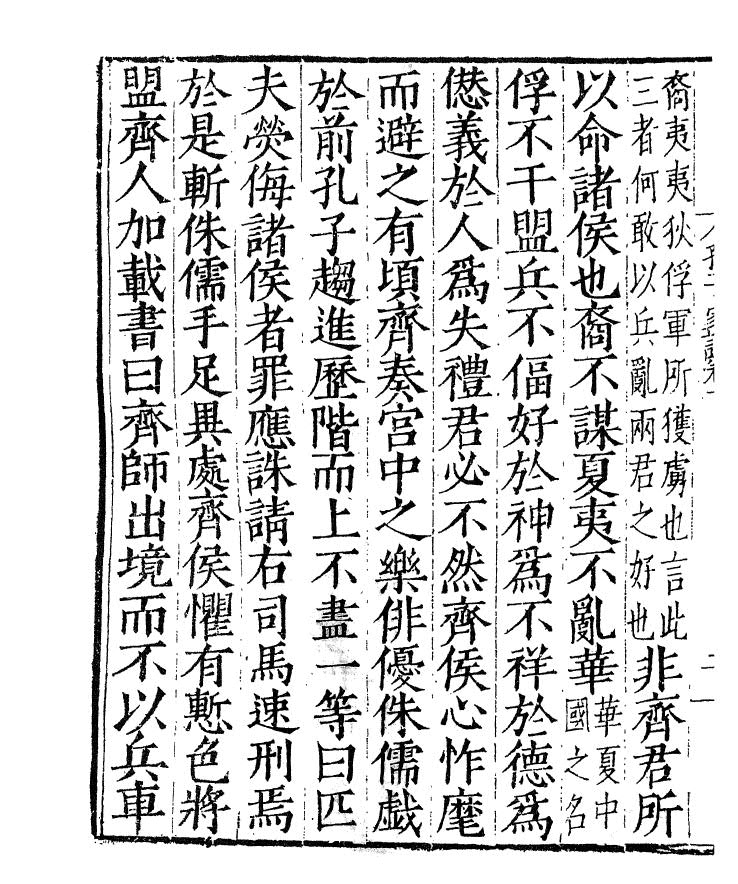 裔夷夷狄俘軍所獲虜也言此
三者何敢以兵亂兩君之好也
非齊君所
以命諸侯也裔不謀夏夷不亂華
華夏中
國之名
俘不干盟兵不偪好於神爲不祥於德爲
僁義於人爲失禮君必不然齊侯心怍麾
而避之有頃齊奏宮中之樂俳優侏儒戲
於前孔子趨進歷階而上不盡一等曰匹
夫熒侮諸侯者罪應誅請右司馬速刑焉
於是斬侏儒手足異處齊侯懼有慙色將
盟齊人加載書曰齊師出境而不以兵車